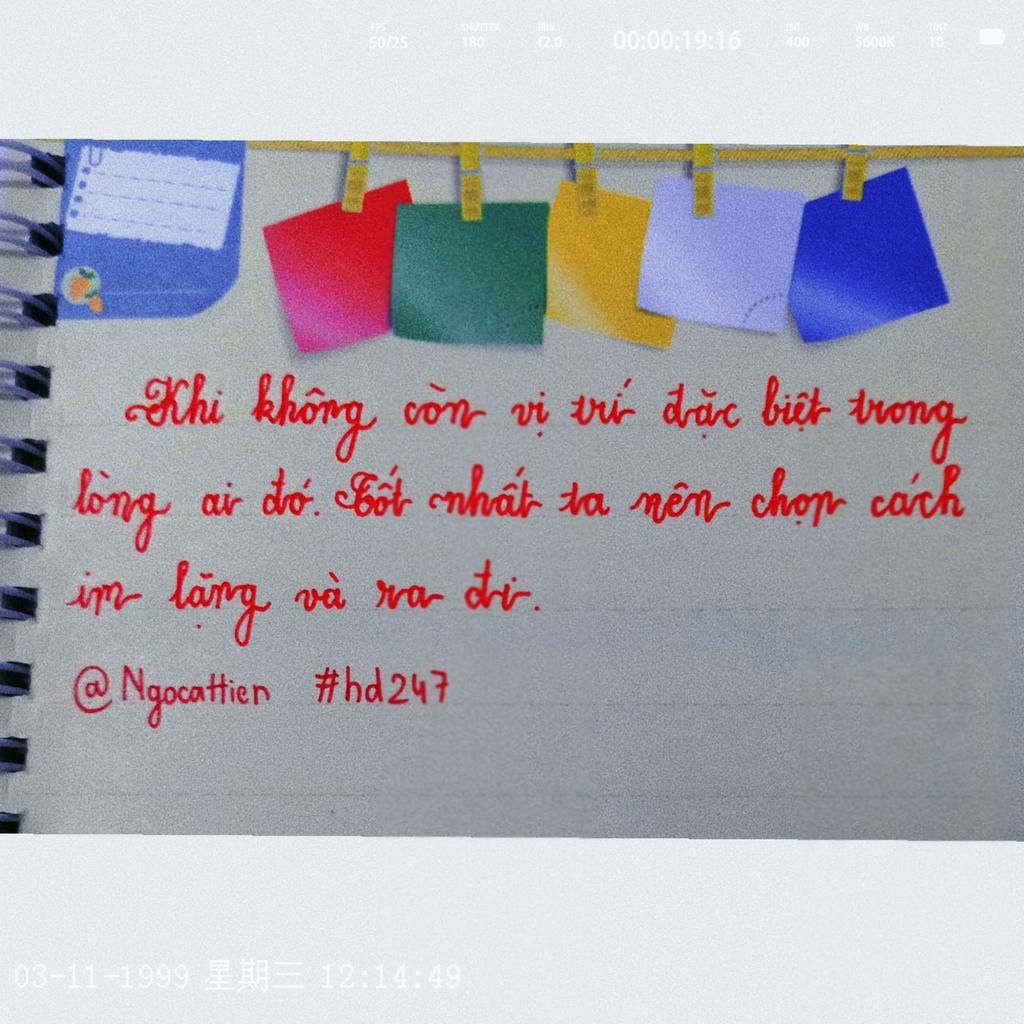 FPS SHUTTER IRIS ISO WB TINT
50/25 180 f2.0 00:00:19:16 400 5600K 10
Khi không còn vị trí đặc biệt trong
lòng ai đó. Tốt nhất ta nên chọn cách
im lặng và ra đi.
@Ngocattien #hd247
03-11-1999 星期三 12:14:49